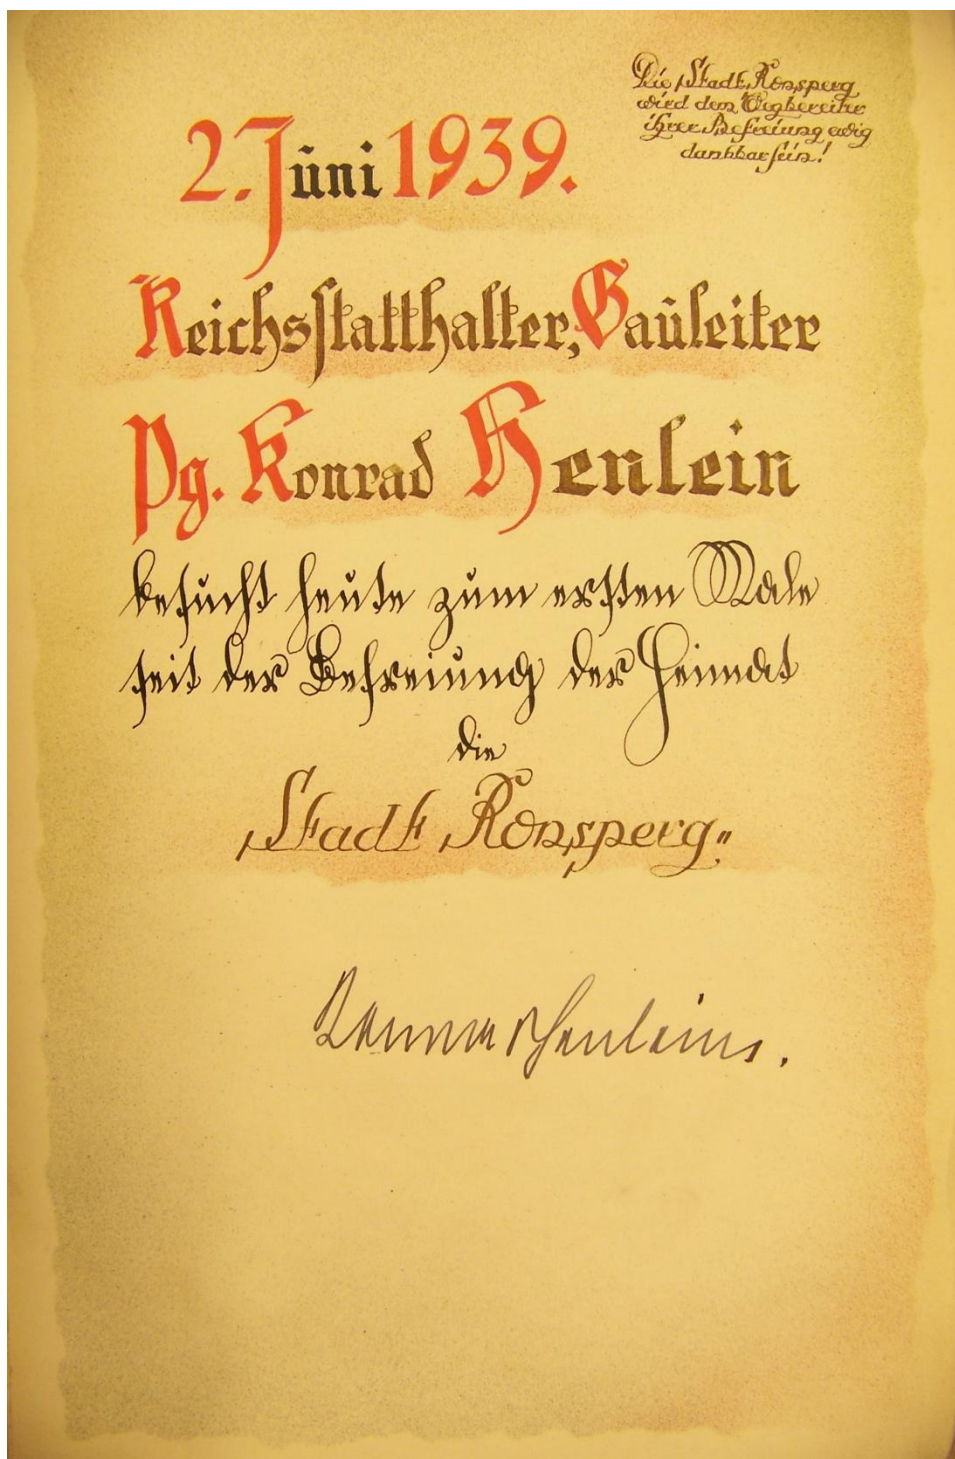 Die Stadt Ronsperg
wird dem Wegbereiter
ihrer Befreiung ewig
dankbar sein!
2. Juni 1939.
Reichsstatthalter, Gauleiter
Pg. Konrad Henlein
besucht heute zum ersten Male
seit der Befreiung der Heimat
die
„Stadt Ronsperg“
Henlein